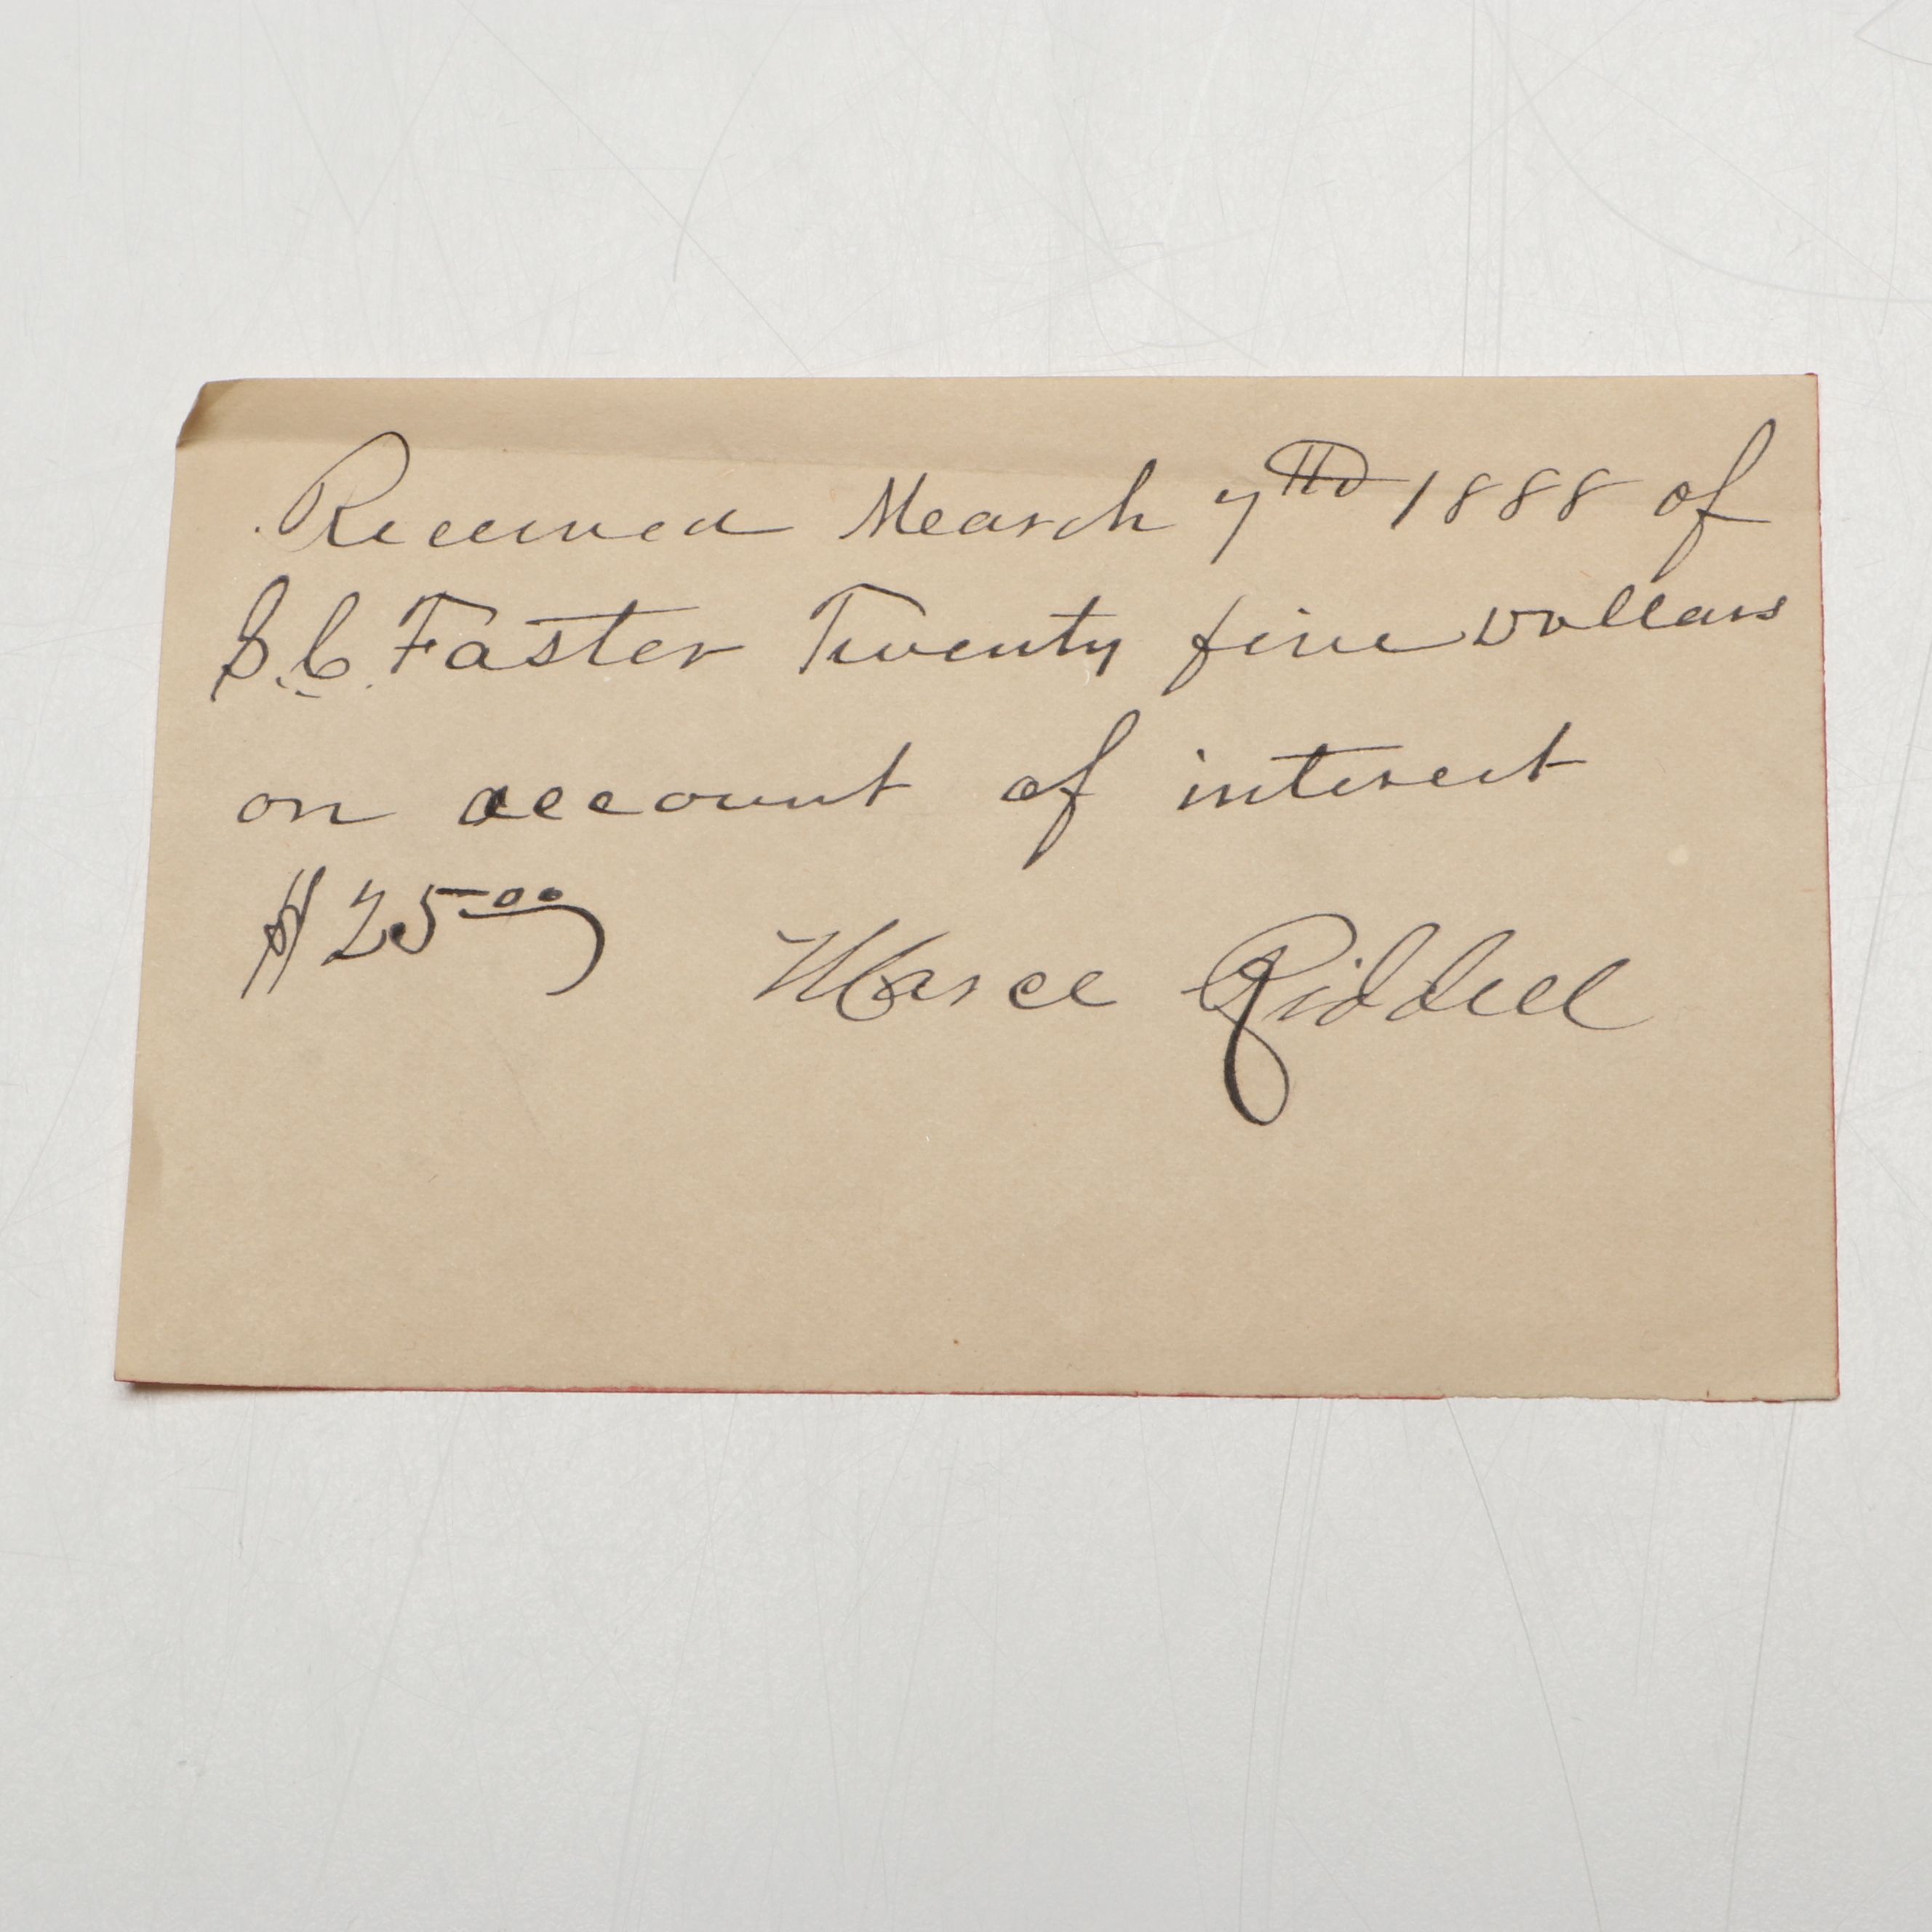 Received March 7th 1888 of
S. C. Foster Twenty five Dollars
on account of interest
$25.00 Marce Riddell